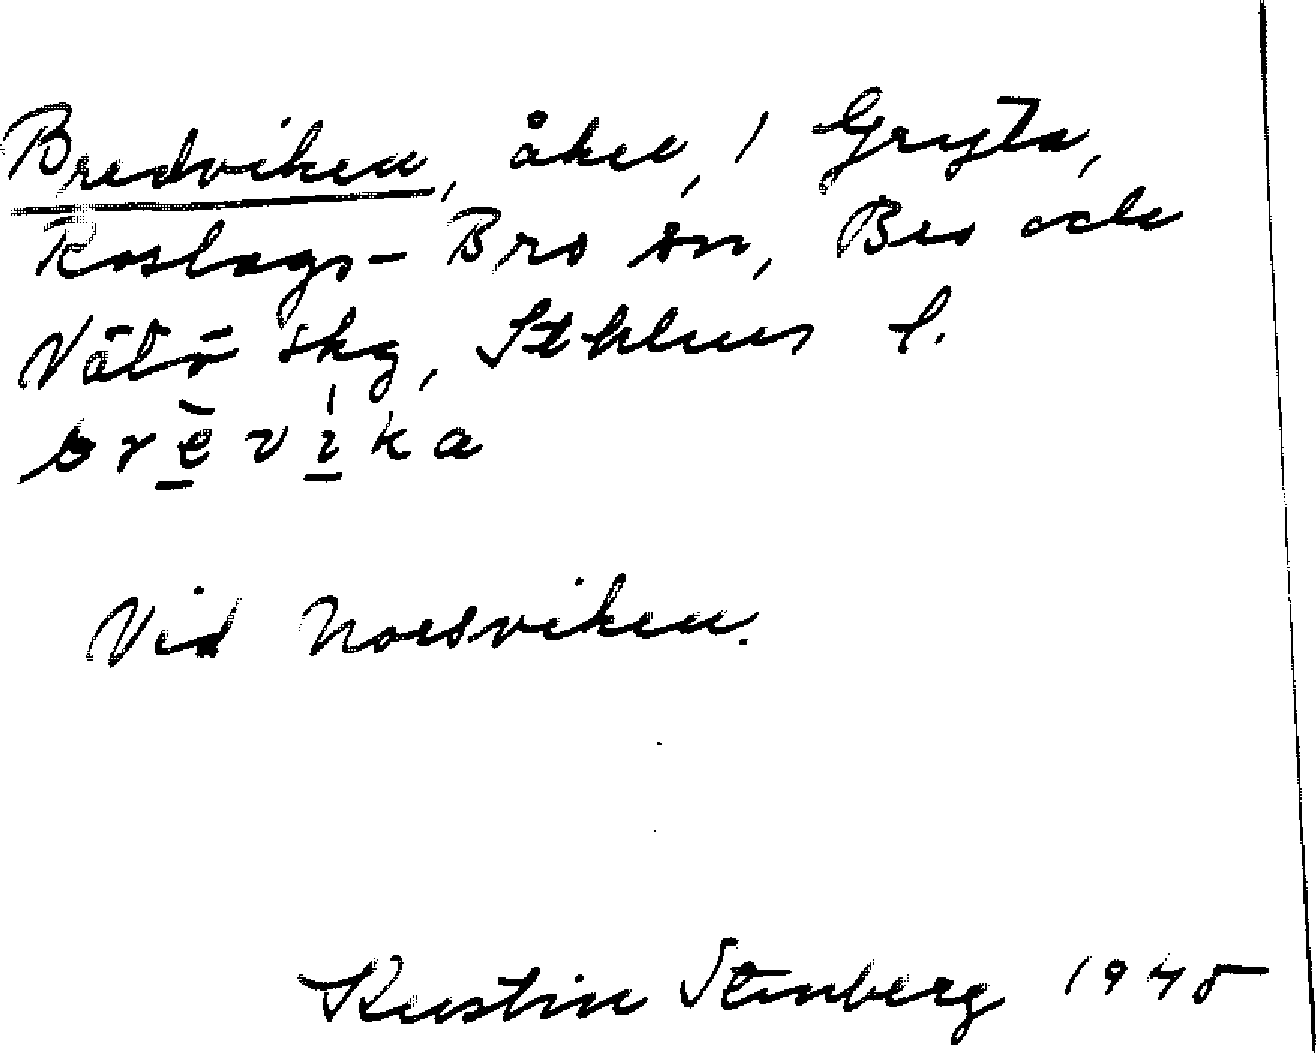 Bredviken, åker, 1 Gryta,
Roslags-Bro sn, Bro och
Vätö skg, Sthlms l.
brèvíka
Vid Norsviken.
Kerstin Stenberg 1945